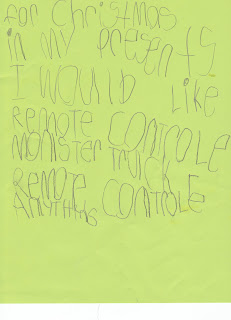 for Christmas
in my presents
I WOUlD like
REMOTE CONTROLE
MONSTER TRUCK
REMOTE CONTROLE
ANYTHING